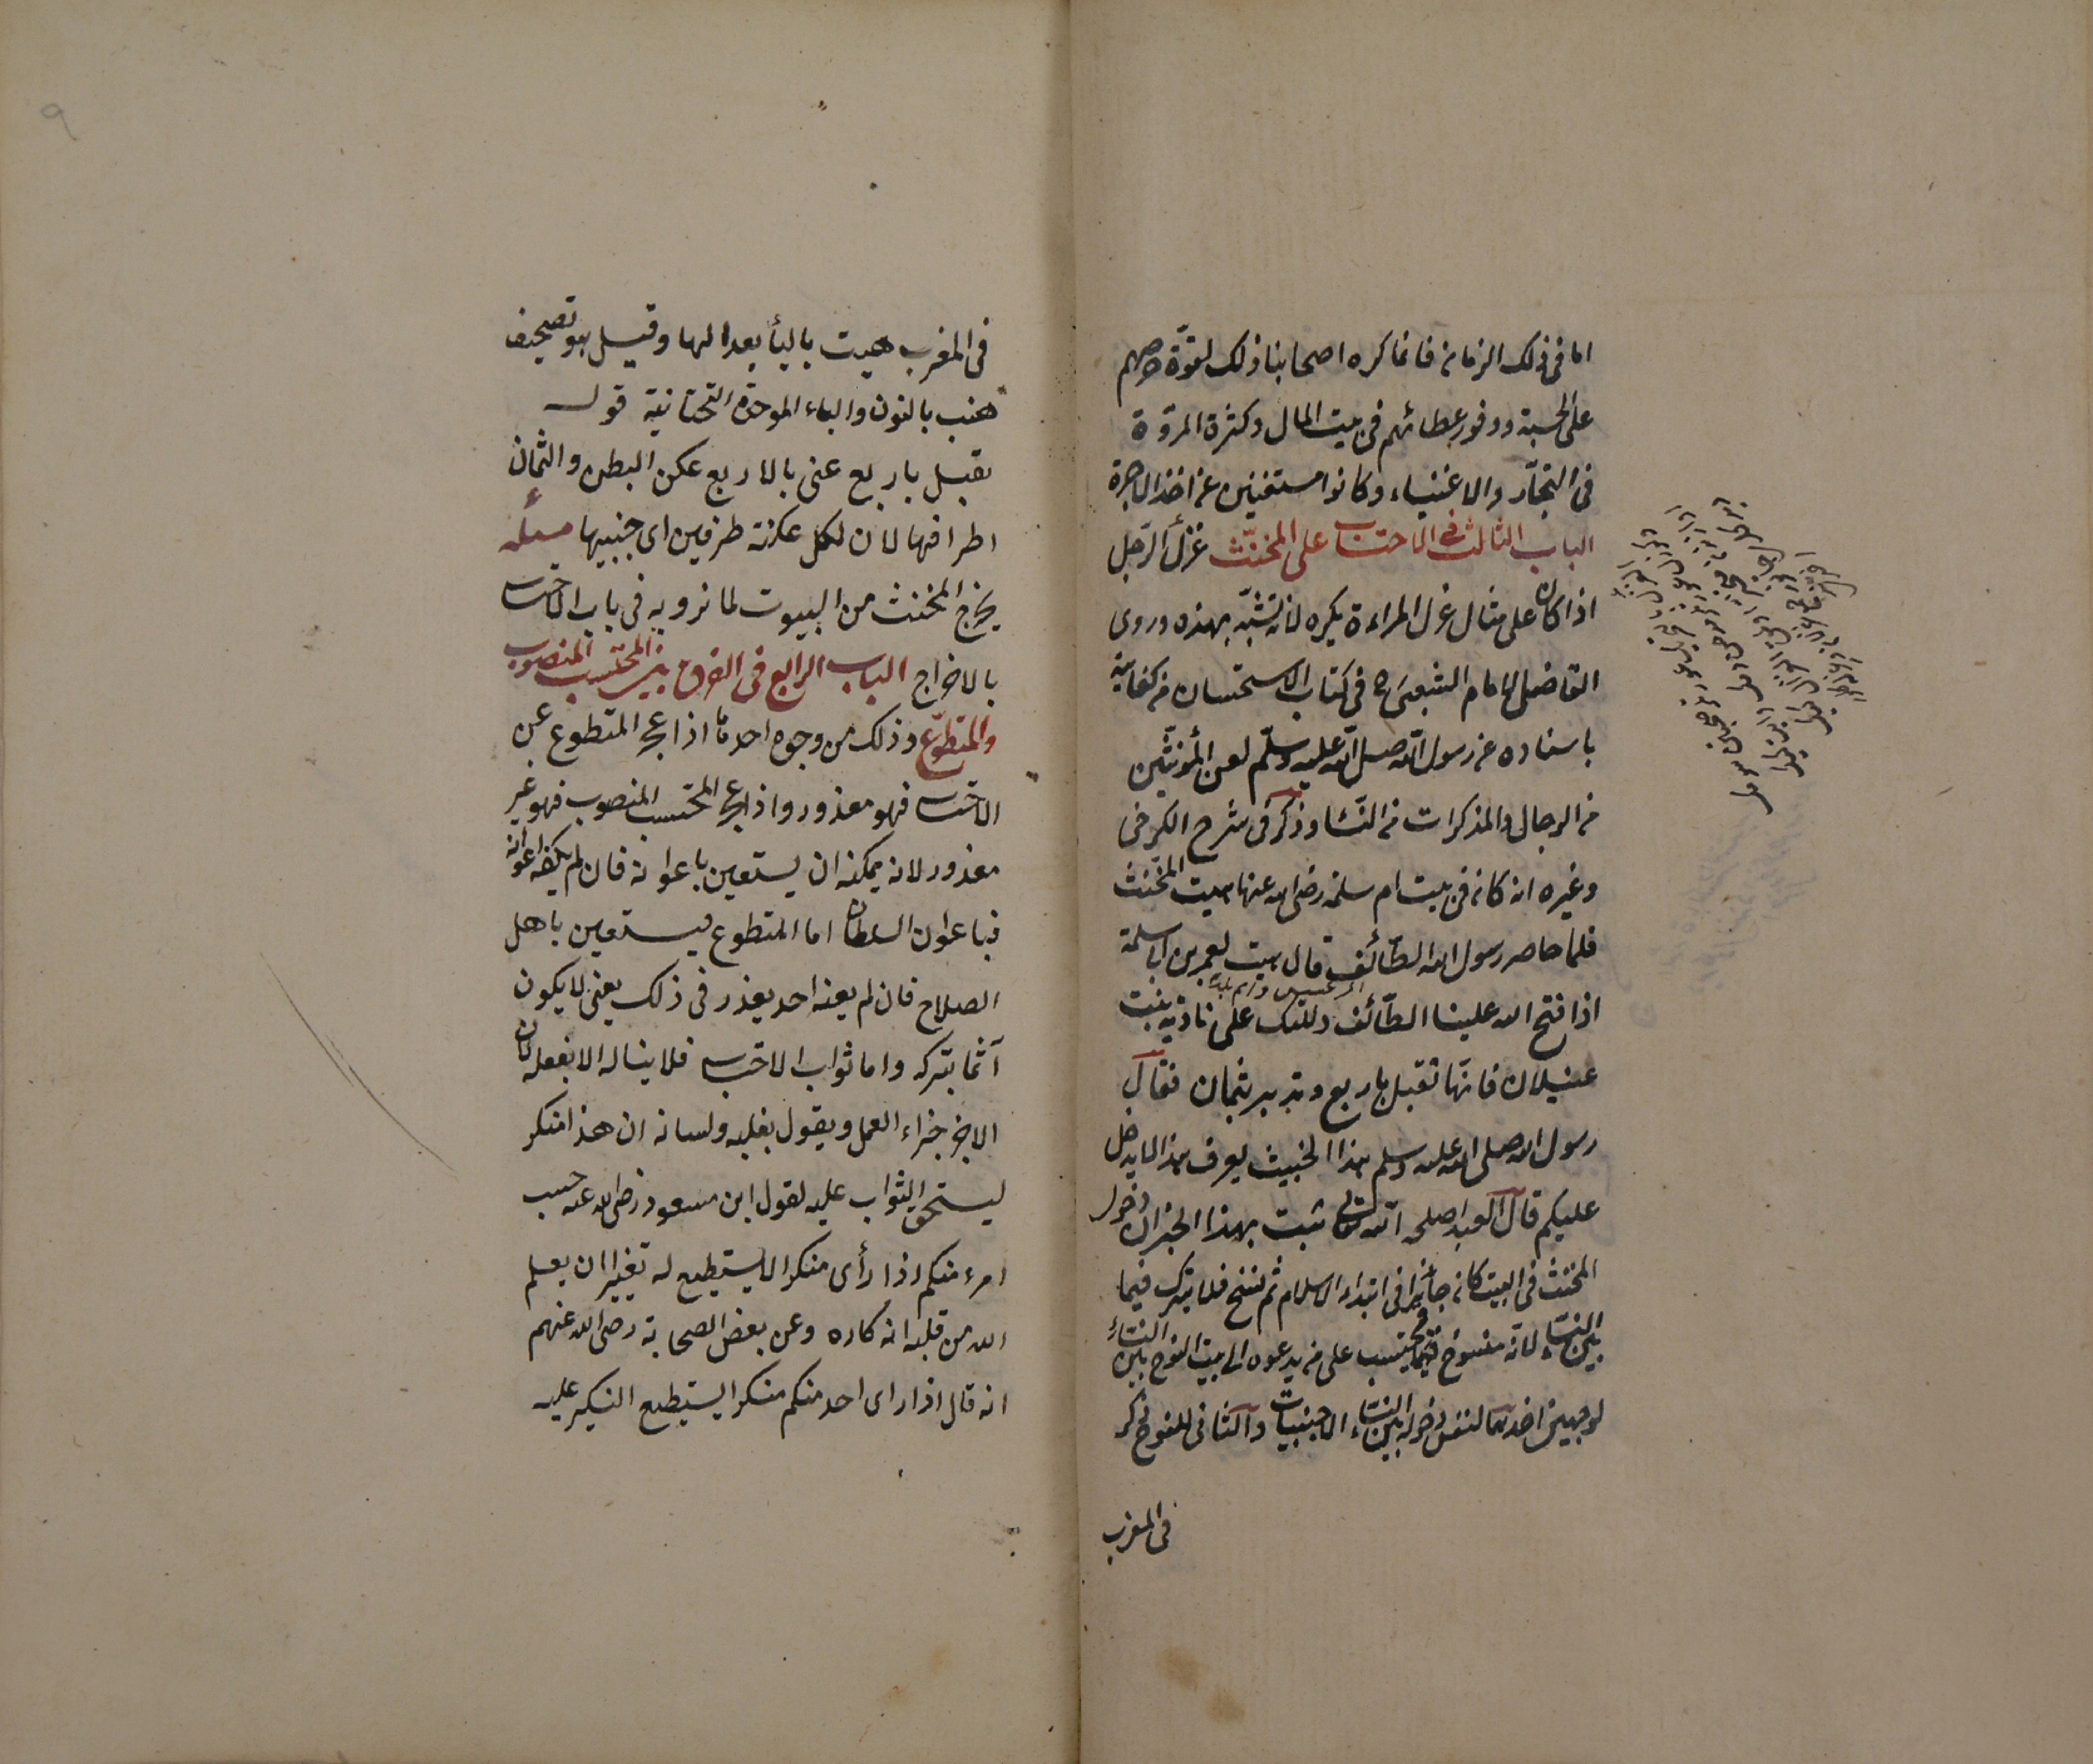 اما فى ذلك الزمان فانما كره اصحابنا ذلك لقوّة حرصهم
على الحسبة ووفور عطائهم فى بيت المال وكثرة المروّة
فى التجّار والاغنياء وكانوا مستغنين عن اخذ الاجرة
الباب الثالث فى الاحتساب على المخنّث غزل الرّجل
اذا كان على مثال غزل المراءة يكره لانه تشبّه بهذه وروى
القاضى الامام الشعبىّ فى كتاب الاستحسان من كفايته
باسناده عن رسول الله صلى الله عليه وسلّم لعن المؤنثين
من الرجال والمذكرات من النسا وذكر فى شرح الكرخى
وغيره انه كان فى بيت ام سلمة رضى الله عنها هيت المخنث
فلما حاصر رسول الله الطّائف قال هيت لعمر بن ابى سلمة
اذا فتح الله علينا الطّائف دللتك على نادية بنت
غيلان فانّها تقبل باربع وتدبر بثمان فقال
رسول الله صلى الله عليه وسلم هذا الخبيث يعرف هذا لا يدخل
عليكم قال العبد اصلحه الله تعالى ثبت بهذا الخبر ان دخول
المخنث فى البيت كان جائزا فى ابتداء الاسلام ثم نسخ فلا يترك فيما
بين النساء لانه منسوخ فيحتسب على من يدعوه الى بيت النوح بين النساء
لوجهين احدهما لنفس دخوله بين النساء الاجنبيات والثانى للنوح ذكر
فى المغرب
فى المغرب هيت باليأ بعد الها وقيل هو تصحيف
هنب بالنون والباء الموحدة التحتانية قوله
تقبل باربع عنى بالاربع عكن البطن والثمان
اطرافها لان لكل عكنة طرفين اى جنبيها مسئله
يخرج المخنث من البيوت لما نرويه فى باب الاحتساب
بالاخراج الباب الرابع فى الفرق بين المحتسب المنصوب
والمتطوّع وذلك من وجوه احدها اذا عجز المتطوع عن
الاحتساب فهو معذور واذا عجز المحتسب المنصوب فهو غير
معذور لانه يمكنه ان يستعين باعوانه فان لم يكفه اعوانه
فباعوان السلطان اما المتطوع فيستعين باهل
الصلاح فان لم يعنه احد يعذر فى ذلك يعنى لا يكون
آثما بتركه واما ثواب الاحتساب فلا يناله الا بفعله لان
الاجر جزاء العمل ويقول بقلبه ولسانه ان هذا منكر
ليستحق الثواب عليه لقول ابن مسعود رضى الله عنه حسب
امرء منكم اذا رأى منكرا لا يستطيع له تغييرا ان يعلم
الله من قلبه انه كاره وعن بعض الصحابة رضى الله عنهم
انه قال اذا راى احد منكم منكرا لا يستطيع النكير عليه
٩